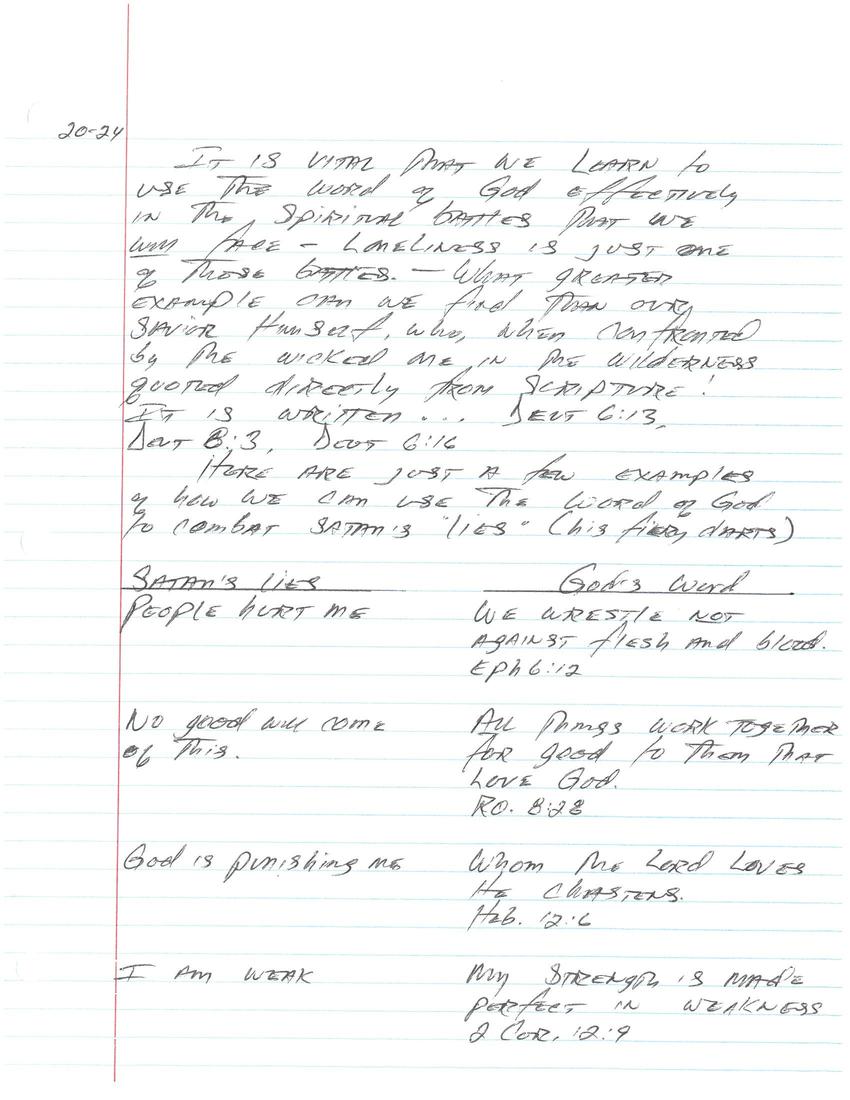 20-24
It is vital that we learn to
use the word of God effectively
in the spiritual battles that we
will face - Loneliness is just one
of those battles. — What greater
example can we find than our
Savior Himself, who, when confronted
by the wicked one in the wilderness
quoted directly from Scripture!
It is written ... Deut 6:13,
Deut 8:3, Deut 6:16
Here are just a few examples
of how we can use the word of God
to combat Satan's "lies" (his fiery darts)
Satan's lies God's Word
People hurt me We wrestle not
against flesh and blood.
Eph 6:12
No good will come All things work together
of this. for good to them that
love God.
Ro. 8:28
God is punishing me Whom the Lord loves
He chastens.
Heb. 12:6
I am weak My strength is made
perfect in weakness
2 Cor. 12:9